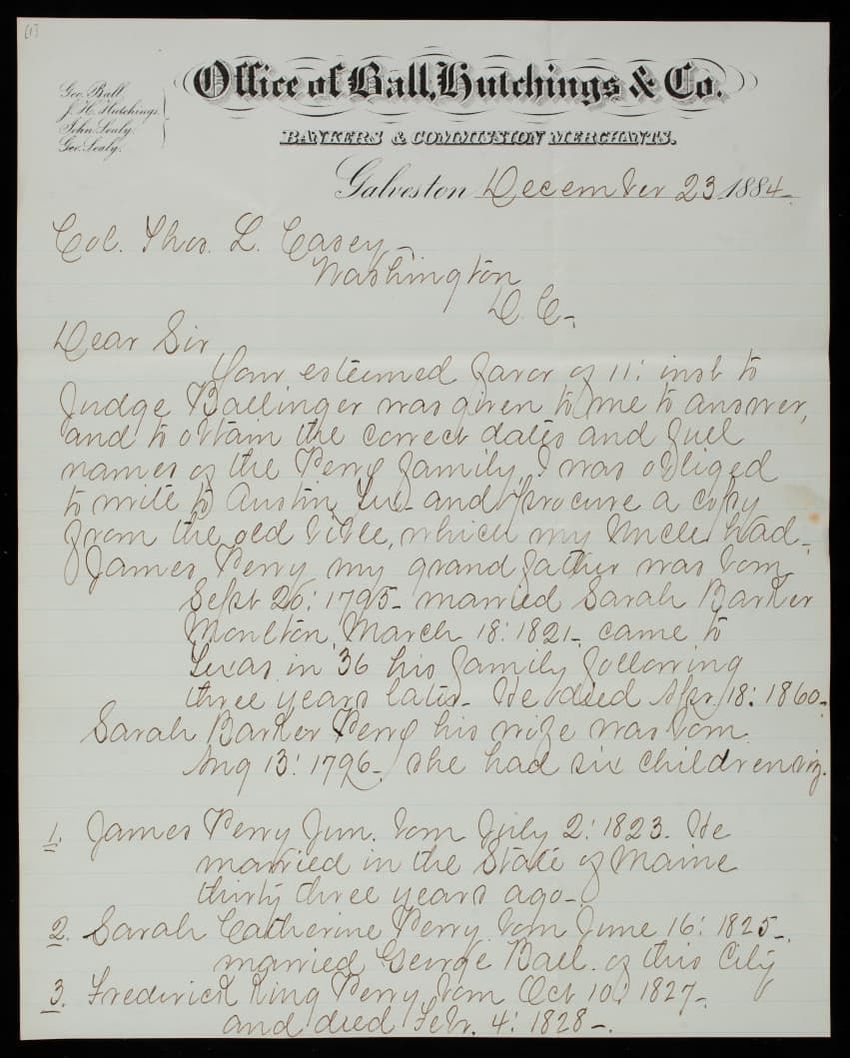 (1)
Office of Ball, Hutchings & Co.
Geo. Ball.
J. H. Hutchings.
John Sealy.
Geo. Sealy.
BANKERS & COMMISSION MERCHANTS.
Galveston December 23 1884-
Col. Thos. L. Casey-
Washington
D. C-
Dear Sir
Your esteemed favor of 11: inst to
Judge Ballinger was given to me to answer,
and to obtain the correct dates and full
names of the Perry family, I was obliged
to write to Austin Tex- and procure a copy
from the old bible, which my Uncle had-
James Perry my grand father was born
Sept 26: 1795- married Sarah Barker
Moulton, March 18: 1821- came to
Texas in '36 his family following
three years later- He died Apr 18: 1860-
Sarah Barker Perry his wife was born
Aug 13: 1796- she had six children viz.
1. James Perry Jun. born July 2: 1823. He
married in the State of Maine
thirty three years ago-
2. Sarah Catherine Perry born June 16: 1825-
married George Ball. of this City
3. Frederick King Perry born Oct 10: 1827-
and died Febr. 4: 1828-.